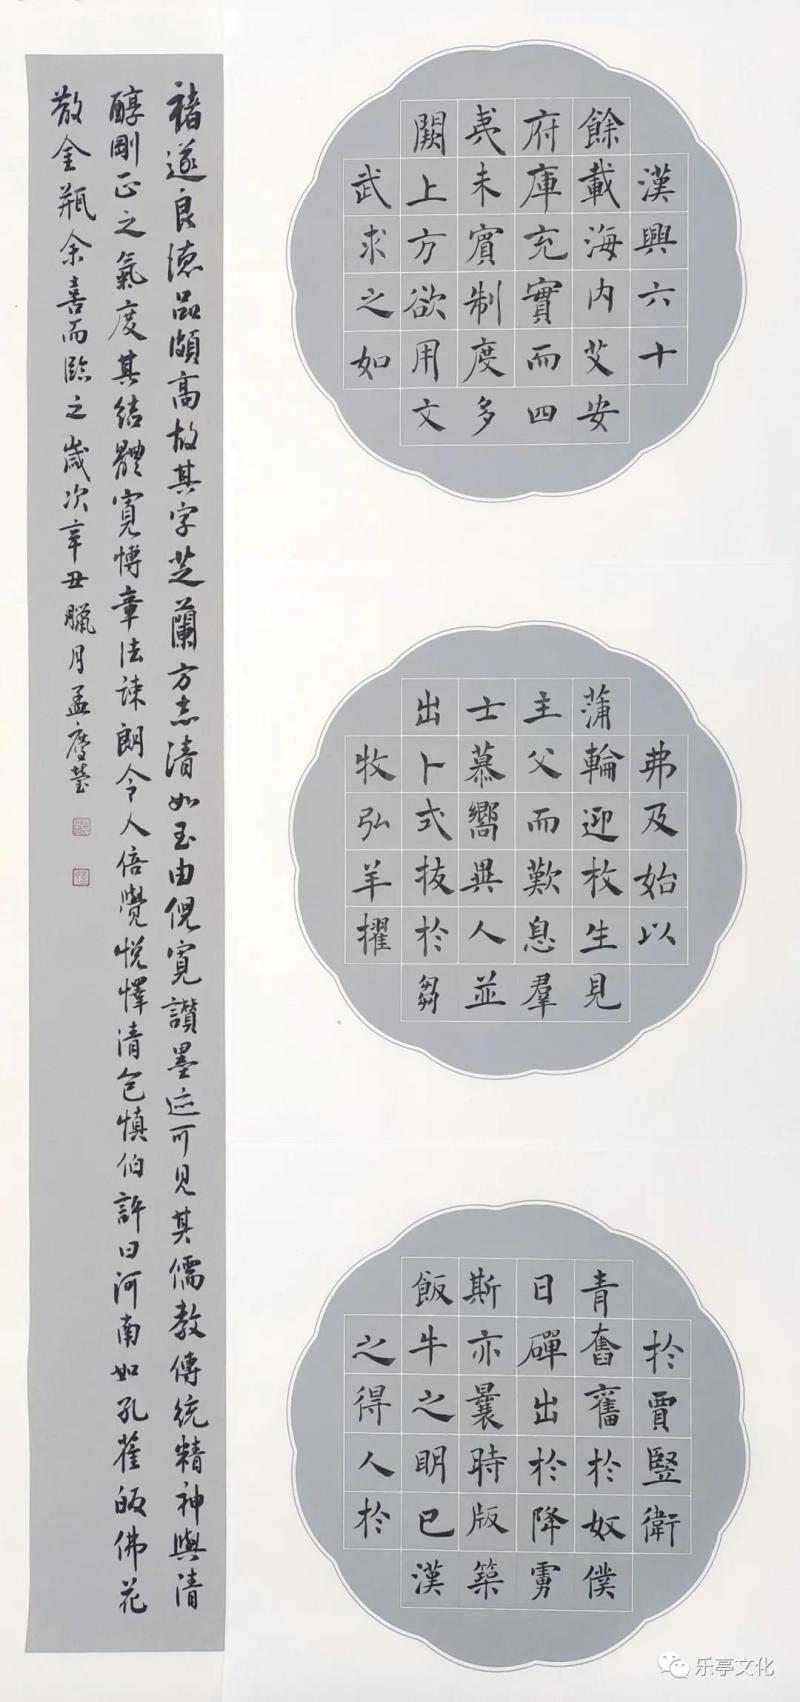 漢興六十
餘載海内艾安
府庫充實而四
夷未賓制度多
闕上方欲用文
武求之如
弗及始以
蒲輪迎枚生見
主父而歎息羣
士慕嚮異人並
出卜式拔於芻
牧弘羊擢
於賈豎衛
青奮舊於奴僕
日磾出於降虜
斯亦曩時版築
飯牛之明已漢
之得人於
褚遂良德品頗高故其字芝蘭方志清如玉由倪寬讚墨迹可見其儒教傳統精神與清
醇剛正之氣度其結體寬博章法疎朗令人倍覺悅懌清包慎伯許曰河南如孔雀皈佛花
散金瓶余喜而臨之歲次辛丑臘月孟慶瑩
乐亭文化